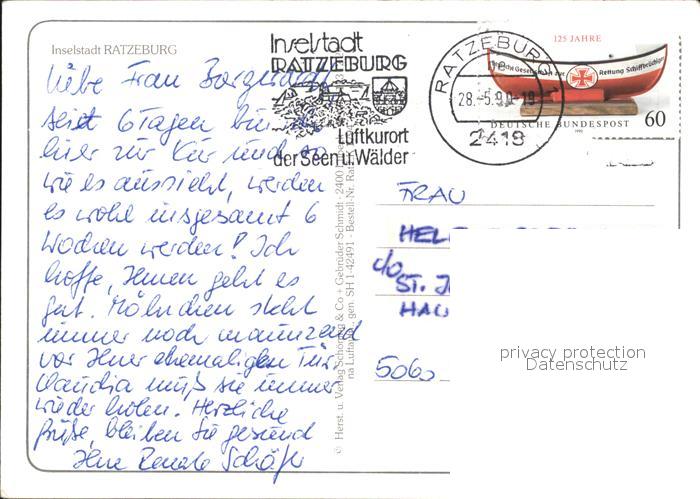 Inselstadt RATZEBURG
Inselstadt
RATZEBURG
Luftkurort
der Seen u. Wälder
RATZEBURG
28.-5.90-19
2418
125 JAHRE
Deutsche Gesellschaft zur Rettung Schiffbrüchiger
DEUTSCHE BUNDESPOST
60
1990
Liebe Frau
seit 6 Tagen bin ich
hier zur Kur und so
wie es aussieht, werden
es wohl insgesamt 6
Wochen werden! Ich
hoffe, Ihnen geht es
gut. Möhrchen steht
immer noch maunzend
vor Ihrer ehemaligen Tür,
Claudia muß sie immer
wieder holen. Herzliche
Grüße, bleiben Sie gesund
Ihre Renate Schäfer
© Herst. u. Verlag Schöning & Co + Gebrüder Schmidt · 2400
Luft gen. SH 1-42491 - Bestell-Nr. Rat
FRAU
HEL
c/o
ST. J
HAU
5060
privacy protection
Datenschutz